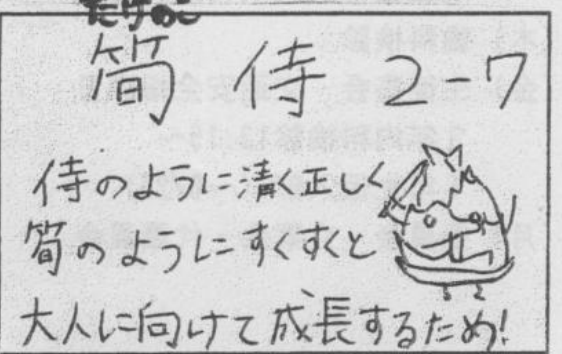 たけのこ
筍 侍 2-7
侍のように清く正しく
筍のようにすくすくと
大人に向けて成長するため!